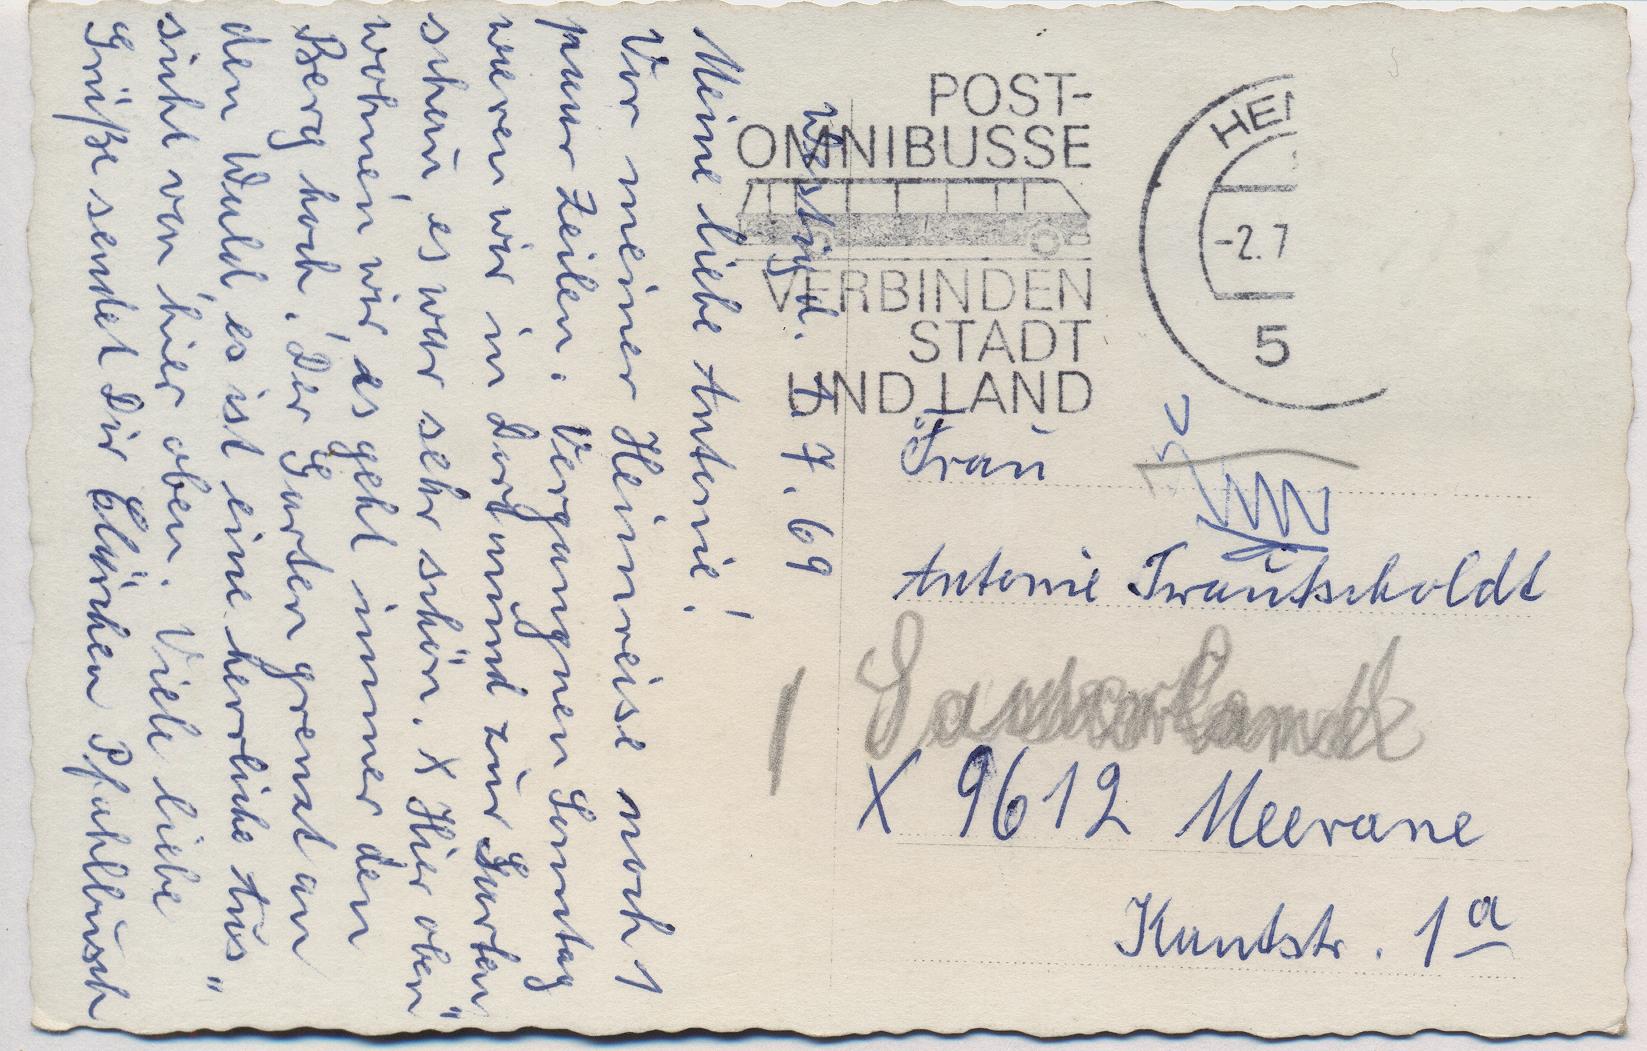 Westigd. 1.7.69
Meine liebe Antonie!
Vor meiner Heimreise noch 1
paar Zeilen. Vergangnen Sonntag
waren wir in Dortmund zur Garten"
schau, es war sehr schön. X Hier oben
wohnen wir, es geht immer den
Berg hoch. Der Garten grenzt an
den Wald, es ist eine herrliche Aus"
sicht von hier oben. Viele liebe
Grüße sendet Dir Clärchen Pfahlbusch
POST-
OMNIBUSSE
VERBINDEN
STADT
UND LAND
HE
-2.7
5
Frau
Antonie Trautscholdt
X 9612 Meerane
Kantstr. 1a